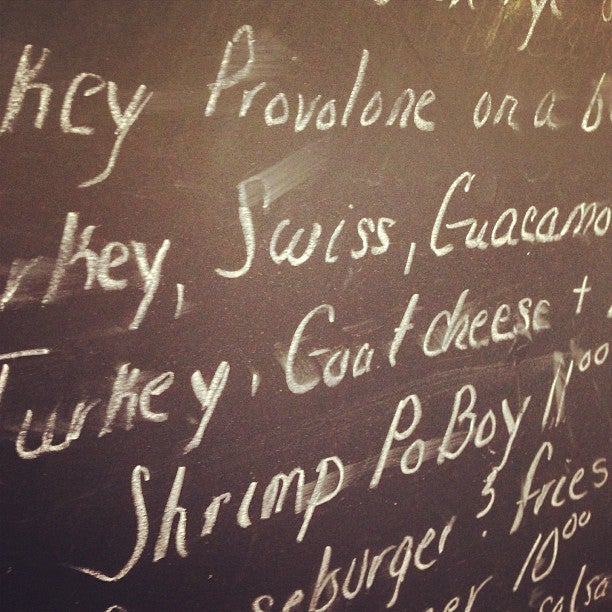 key Provolone on a b
rkey, Swiss, Guacamo
Turkey, Goat cheese +
Shrimp Po Boy 11⁰⁰
seburger & fries
er 10⁰⁰
alsa